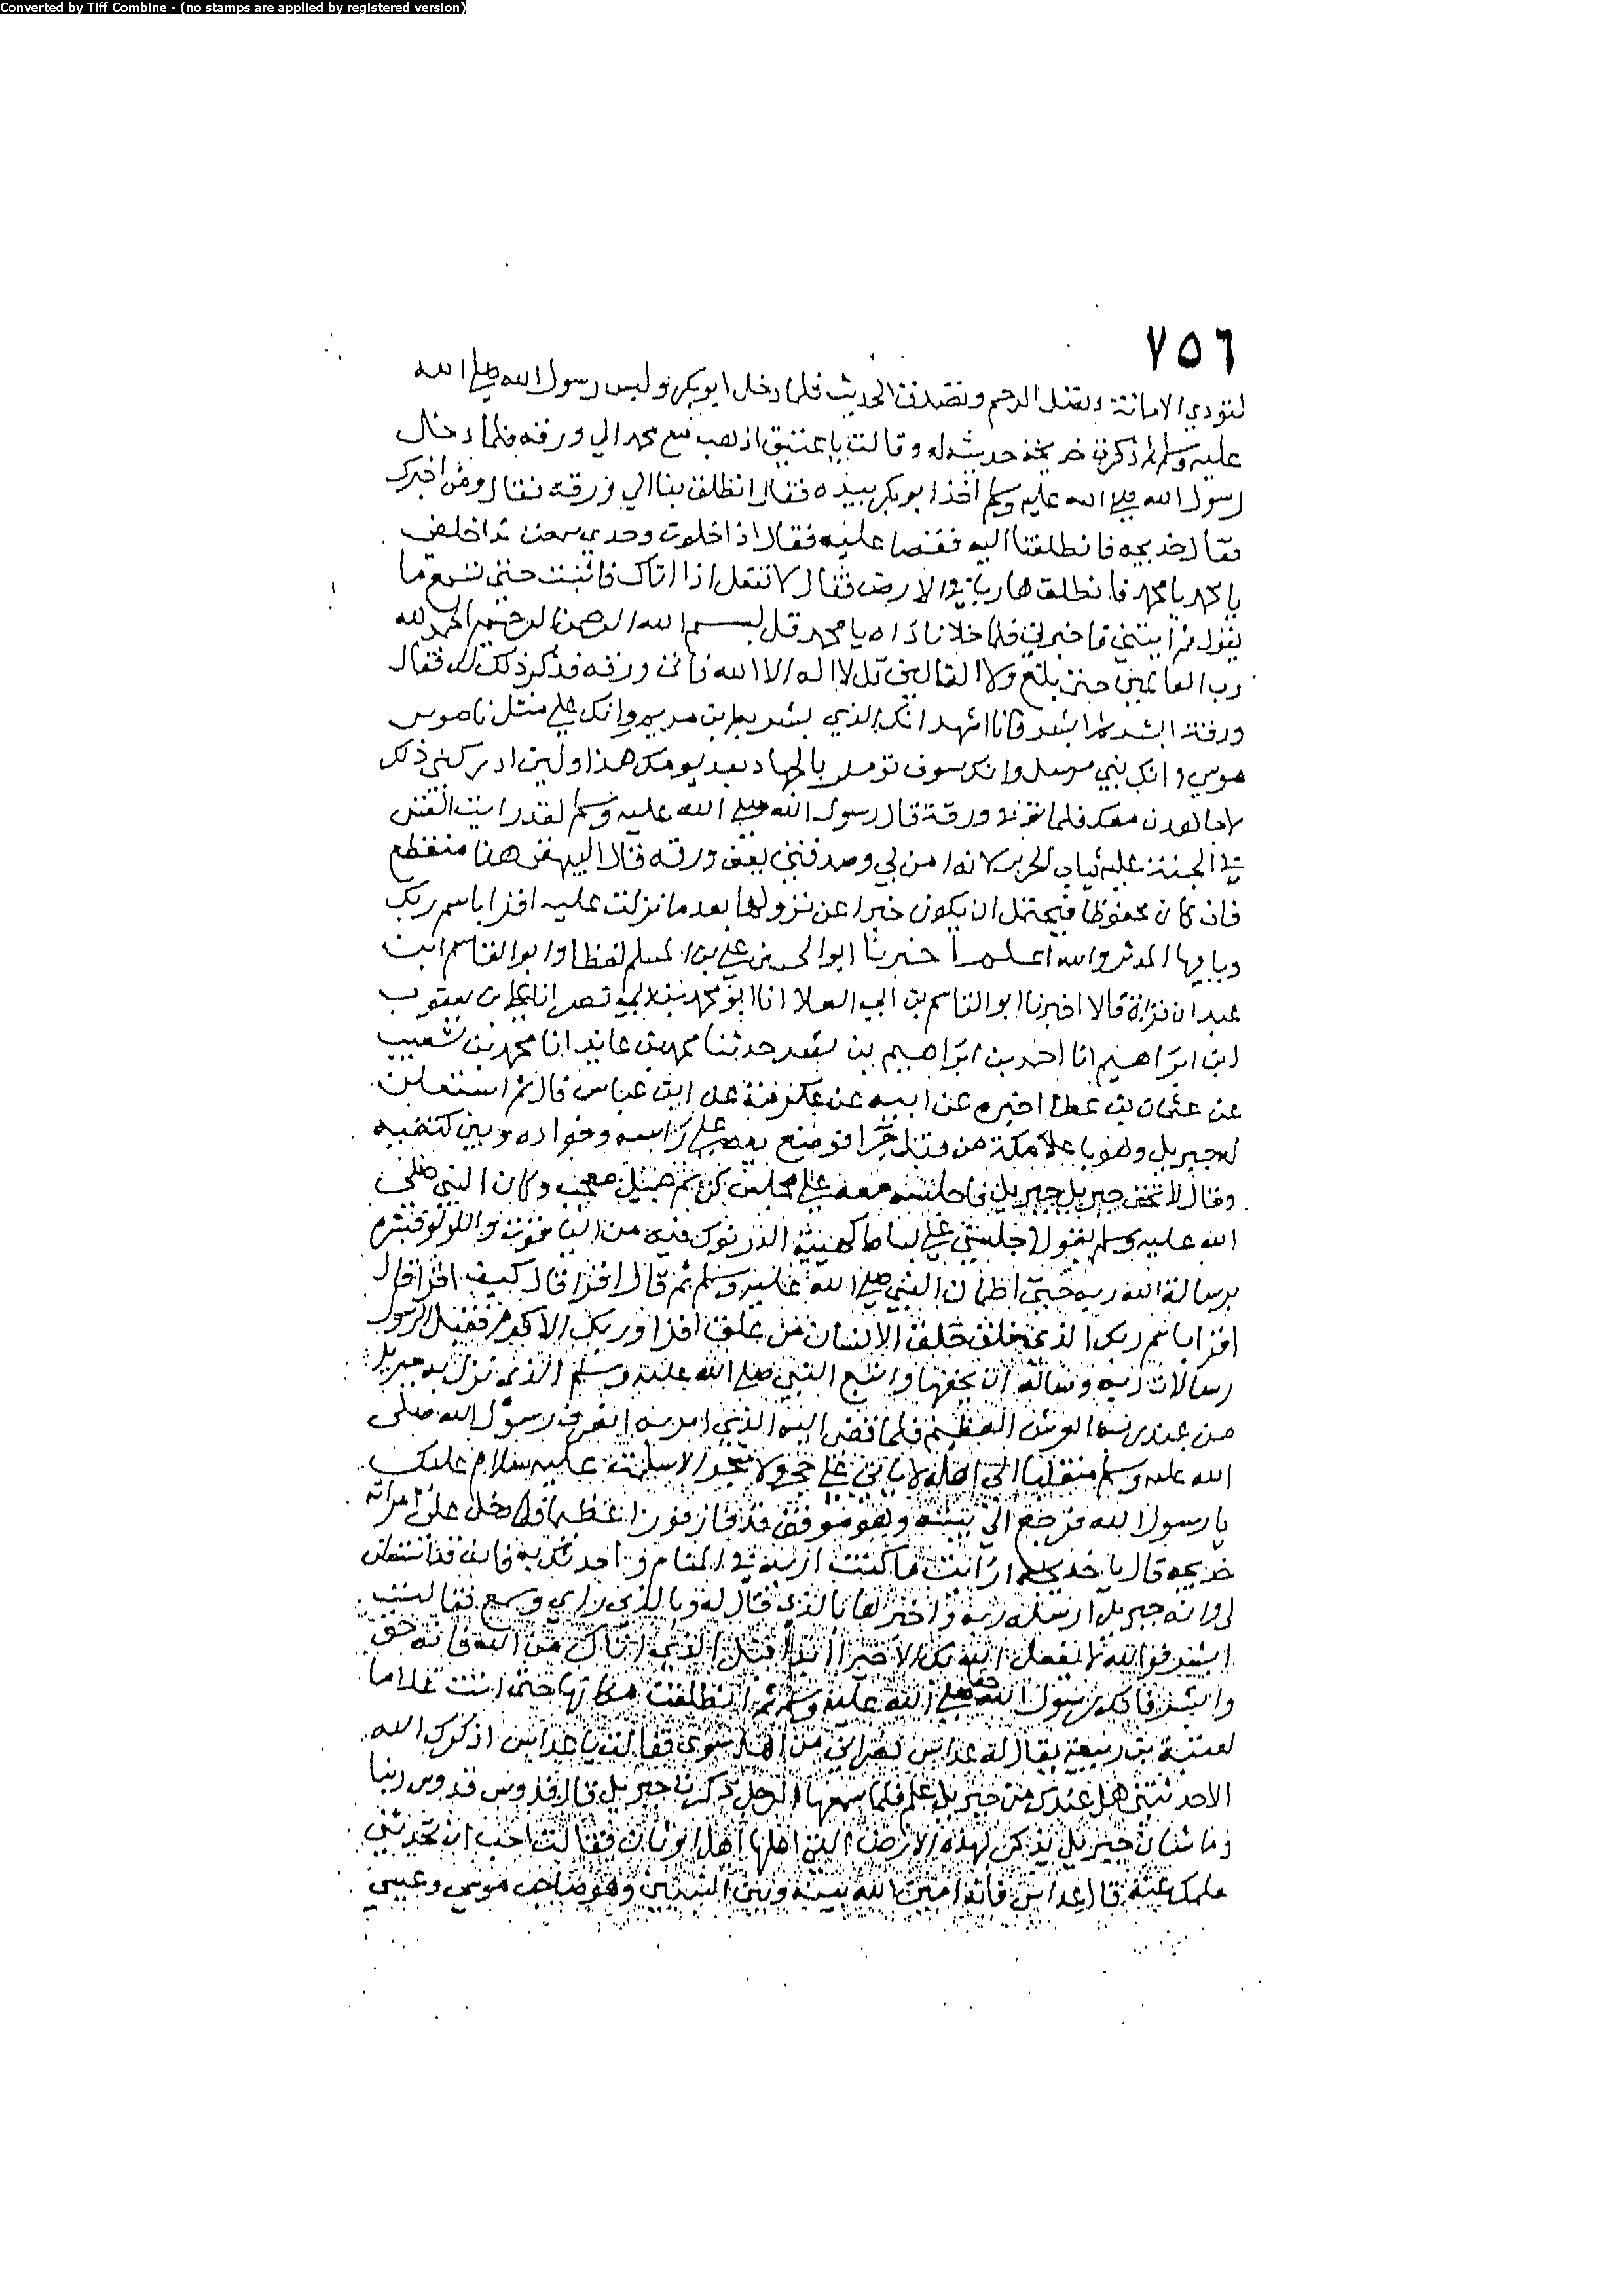 Converted by Tiff Combine - (no stamps are applied by registered version)
٧٥٦
لتودي الامانة وتصل الرحم وتصدق الحديث فلما دخل ابو بكر وليس رسول الله صلى الله
عليه وسلم ثم ذكرت خديجة حديثه له وقالت يا عتيق اذهب مع محمد الي ورقه فلما دخل
رسول الله صلى الله عليه وسلم اخذ ابو بكر بيده فقال انطلق بنا الي ورقة فقال ومن اخبرك
فقال خديجه فانطلقنا اليه فقصا عليه فقال اذا خلوت وحدي سمعت ندا خلفي
يا محمد يا محمد فانطلق هاربا في الارض فقال لا تفعل اذا اتاك فاثبت حتى تسمع ما
يقول ثم ايتني فاخبرني فلما خلا ناداه يا محمد قل بسم الله الرحمن الرحيم الحمد لله
رب العالمين حتى بلغ ولا الضالين قل لا اله الا الله فاتى ورقه فذكر ذلك له فقال
ورقة ابشر ثم ابشر فانا اشهد انك الذي بشر به ابن مريم وانك على مثل ناموس
موسى وانك نبي مرسل وانك سوف تومر بالجهاد بعد يومك هذا ولين ادركني ذلك
لاجاهدن معك فلما توفي ورقة قال رسول الله صلى الله عليه وسلم لقد رايت القس
في الجنة عليه ثياب الحرير لانه امن بي وصدقني يعني ورقه قال البيهقي هذا منقطع
فان كان محفوظا فيحتمل ان يكون خبرا عن نزولها بعد ما نزلت عليه اقرا باسم ربك
ويايها المدثر والله اعلم اخبرنا ابو الحسن علي بن المسلم لفظا وابو القاسم ابن
عبدان قراة قالا اخبرنا ابو القاسم بن ابي العلا انا ابو محمد بن ابي نصر انا علي بن يعقوب
ابن ابراهيم انا احمد بن ابراهيم بن بشر حدثنا محمد بن عايذ انا محمد بن شعيب
عن عثمان بن عطا اخبره عن ابيه عن عكرمة عن ابن عباس قال ثم استعلن
له جبريل وهو باعلا مكة من قبل حرا فوضع يده على راسه وفواده وبين كتفيه
وقال لا تخف جبريل جبريل فاجلسه معه على مجلس كريم جميل معجب وكان النبي صلى
الله عليه وسلم يقول اجلسني على بساط كهيئة الدرنوك فيه من الياقوت واللولو فبشره
برسالة الله ربه حتى اطمان النبي صلى الله عليه وسلم ثم قال اقرا قال كيف اقرا قال
اقرا باسم ربك الذي خلق خلق الانسان من علق اقرا وربك الاكرم فقبل الرسول
رسالات ربه وساله ان يخفها واتبع النبي صلى الله عليه وسلم الذي نزل به جبريل
من عند رب العرش العظيم فلما قضى اليه الذي امر به انصرف رسول الله صلى
الله عليه وسلم منقلبا الى اهله لا ياتي على حجر ولا شجر الا سلمت عليه سلام عليك
يا رسول الله فرجع الى بيته وهو موقن قد فاز فوزا عظيما فلما دخل على امراته
خديجه قال يا خديجه ارايت ما كنت اريته في المنام واحدثك به فانه قد استعلن
لي وانه جبريل ارسله ربه واخبرها بالذي قال له وبالذي راي وسمع فقالت
ابشر فوالله لا يفعل الله بك الا خيرا ابدا اقبل الذي اتاك من الله فانه حق
وابشر فانك رسول الله حقا صلى الله عليه وسلم ثم انطلقت مكانها حتى اتت غلاما
لعتبة بن ربيعة يقال له عداس نصراني من اهل نينوى فقالت يا عداس اذكرك الله
الا حدثتني هل عندك من جبريل علم فلما سمعها الرجل تذكر جبريل قال قدوس قدوس ربنا
وما شان جبريل يذكر بهذه الارض التي اهلها اهل اوثان فقالت احب ان تحدثني
علمك عنه قال عداس فانه امين الله بينه وبين النبيين وهو صاحب موسى وعيسى